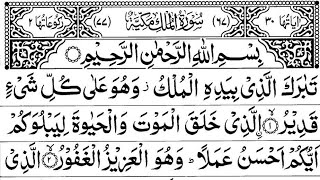 اٰیاتها ۳۰ (٦٧) سُوْرَةُ الْمُلْكِ مَكِّیَّةٌ (٧٧) رکوعاتها ۲
بِسْمِ اللّٰهِ الرَّحْمٰنِ الرَّحِیْمِ
تَبٰرَكَ الَّذِیْ بِیَدِهِ الْمُلْكُ ز وَهُوَ عَلٰی كُلِّ شَیْءٍ
قَدِیْرُ ۙ۝۱ الَّذِیْ خَلَقَ الْمَوْتَ وَالْحَیٰوةَ لِیَبْلُوَكُمْ
اَیُّكُمْ اَحْسَنُ عَمَلًا ؕ وَهُوَ الْعَزِیْزُ الْغَفُوْرُ ۙ۝۲ الَّذِیْ